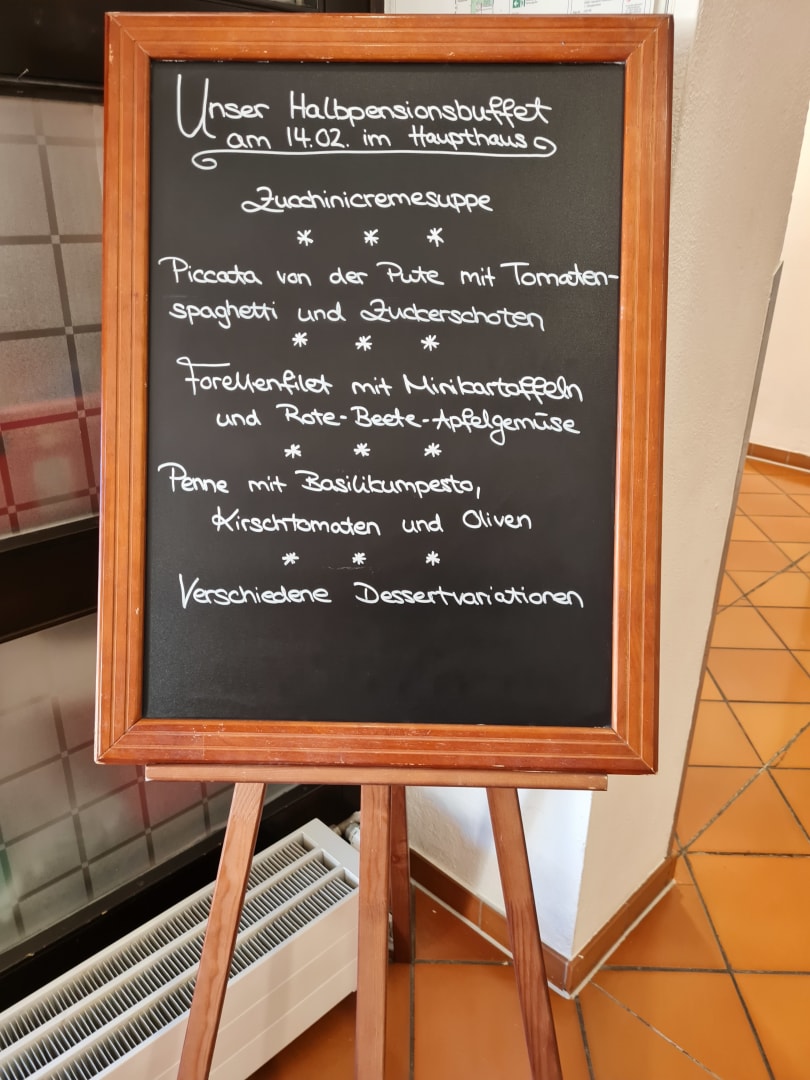 Unser Halbpensionsbuffet
am 14.02. im Haupthaus
Zucchinicremesuppe
* * *
Piccata von der Pute mit Tomaten-
spaghetti und Zuckerschoten
* * *
Forellenfilet mit Minikartoffeln
und Rote-Beete-Apfelgemüse
* * *
Penne mit Basilikumpesto,
Kirschtomaten und Oliven
* * *
Verschiedene Dessertvariationen